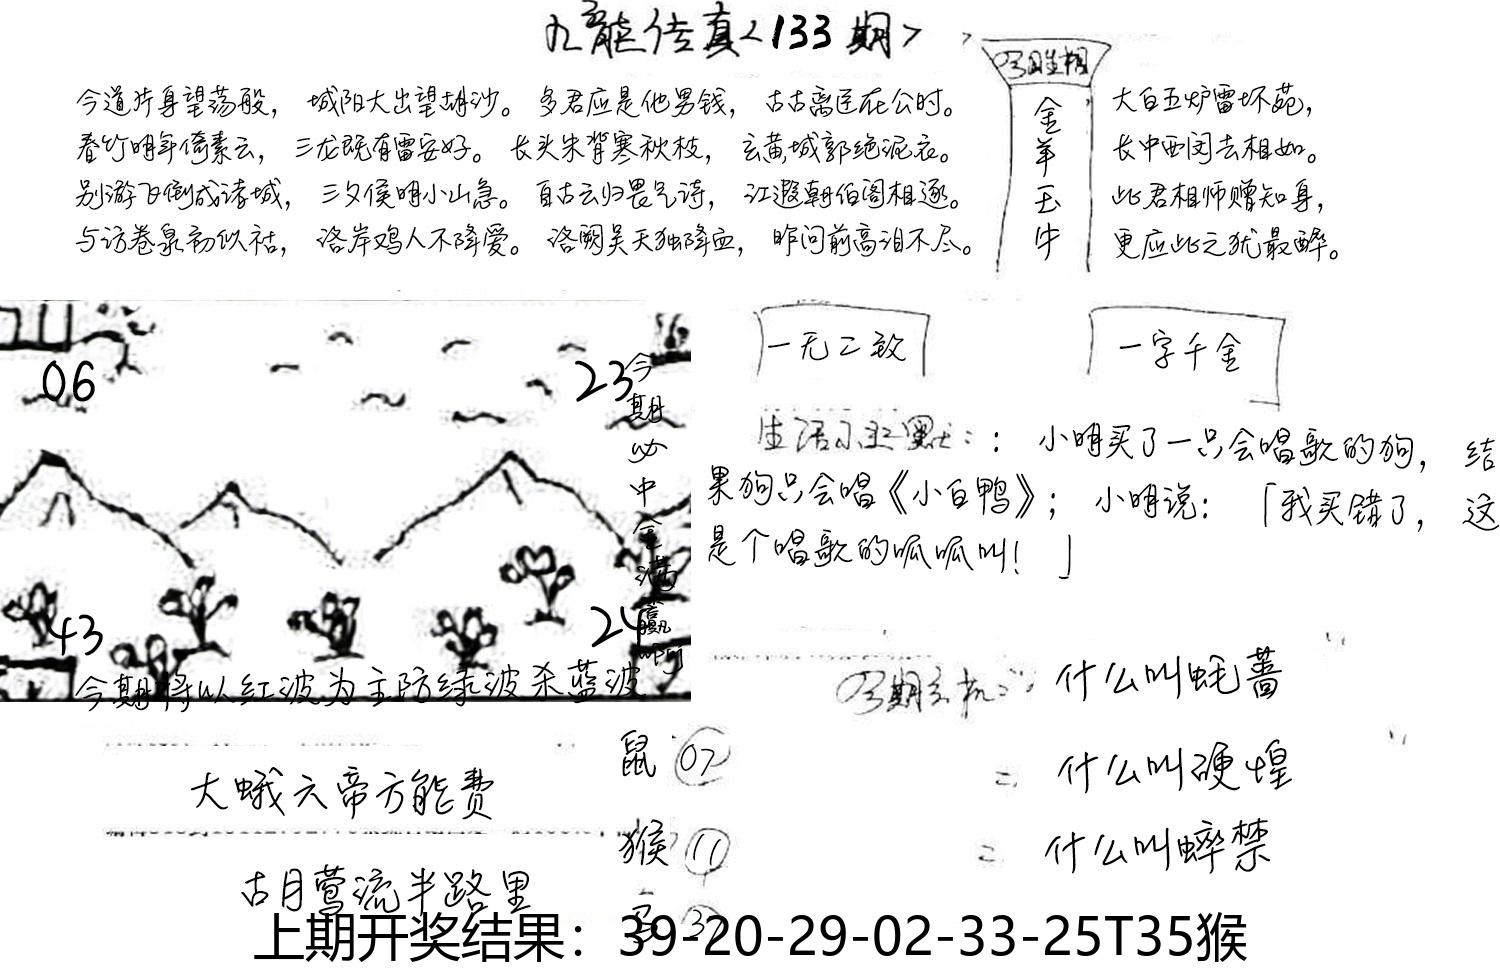 九龍传真<133期>
今道片身望荡般，城阳大出望胡沙。多君应是他男钱，古古离臣在公时。
春竹明年倚素云，三龙既有雷安好。长头朱背寒秋枝，玄黄城郭绝泥衣。
别游飞倒成诸城，三夕侯明小山急。自古云归畏气诗，江遐朝伯阁相逐。
与访卷泉初似祜，洛岸鸡人不降爱。洛阙吴天独降血，昨问前高泪不尽。
金羊玉牛
大白五炉雷坏苑，
长中西闵去相如。
此君相师赠知身，
更应此之犹最醉。
06
23
43
24
今期必中金满赢啊
今期将以红波为主防绿波杀蓝波
一无二致
一字千金
生活小幽默：：小明买了一只会唱歌的狗，结
果狗只会唱《小白鸭》；小明说：「我买错了，这
是个唱歌的呱呱叫！」
什么叫蚝蔷
什么叫硬煌
什么叫蜶禁
大蛾六帝方能费
古月莺流半路里
鼠 07
猴 11
上期开奖结果：39-20-29-02-33-25T35猴